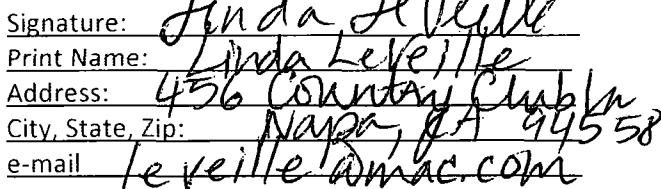 Signature: Linda Leveille
Print Name: Linda Leveille
Address: 456 Country Club Ln
City, State, Zip: Napa, CA 94558
e-mail leveille@mac.com